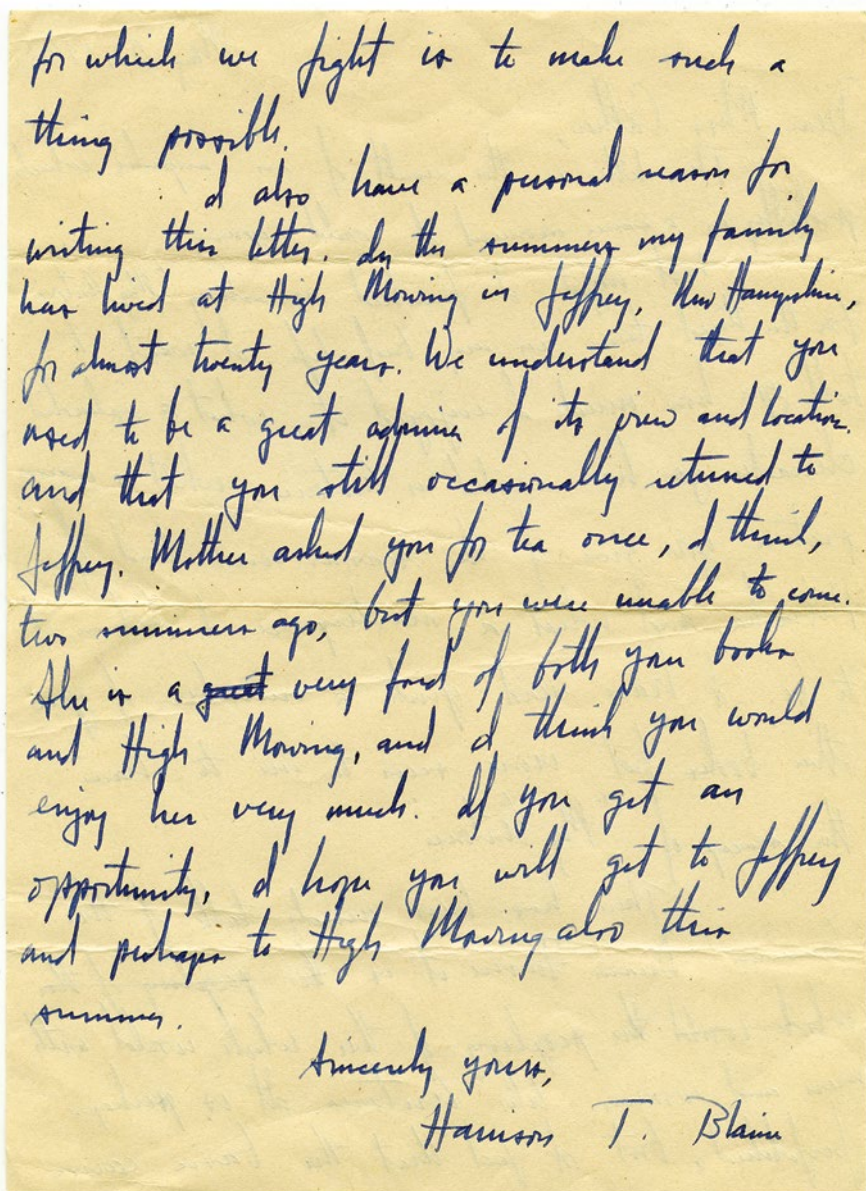 for which we fight is to make such a
thing possible.
I also have a personal reason for
writing this letter. In the summers my family
has lived at High Mowing in Jaffrey, New Hampshire,
for almost twenty years. We understand that you
used to be a great admirer of its view and location.
and that you still occasionally returned to
Jaffrey. Mother asked you for tea once, I think,
two summers ago, but you were unable to come.
She is a great very fond of both your books
and High Mowing, and I think you would
enjoy her very much. If you get an
opportunity, I hope you will get to Jaffrey
and perhaps to High Mowing also this
summer.
Sincerely yours,
Harrison T. Blaine